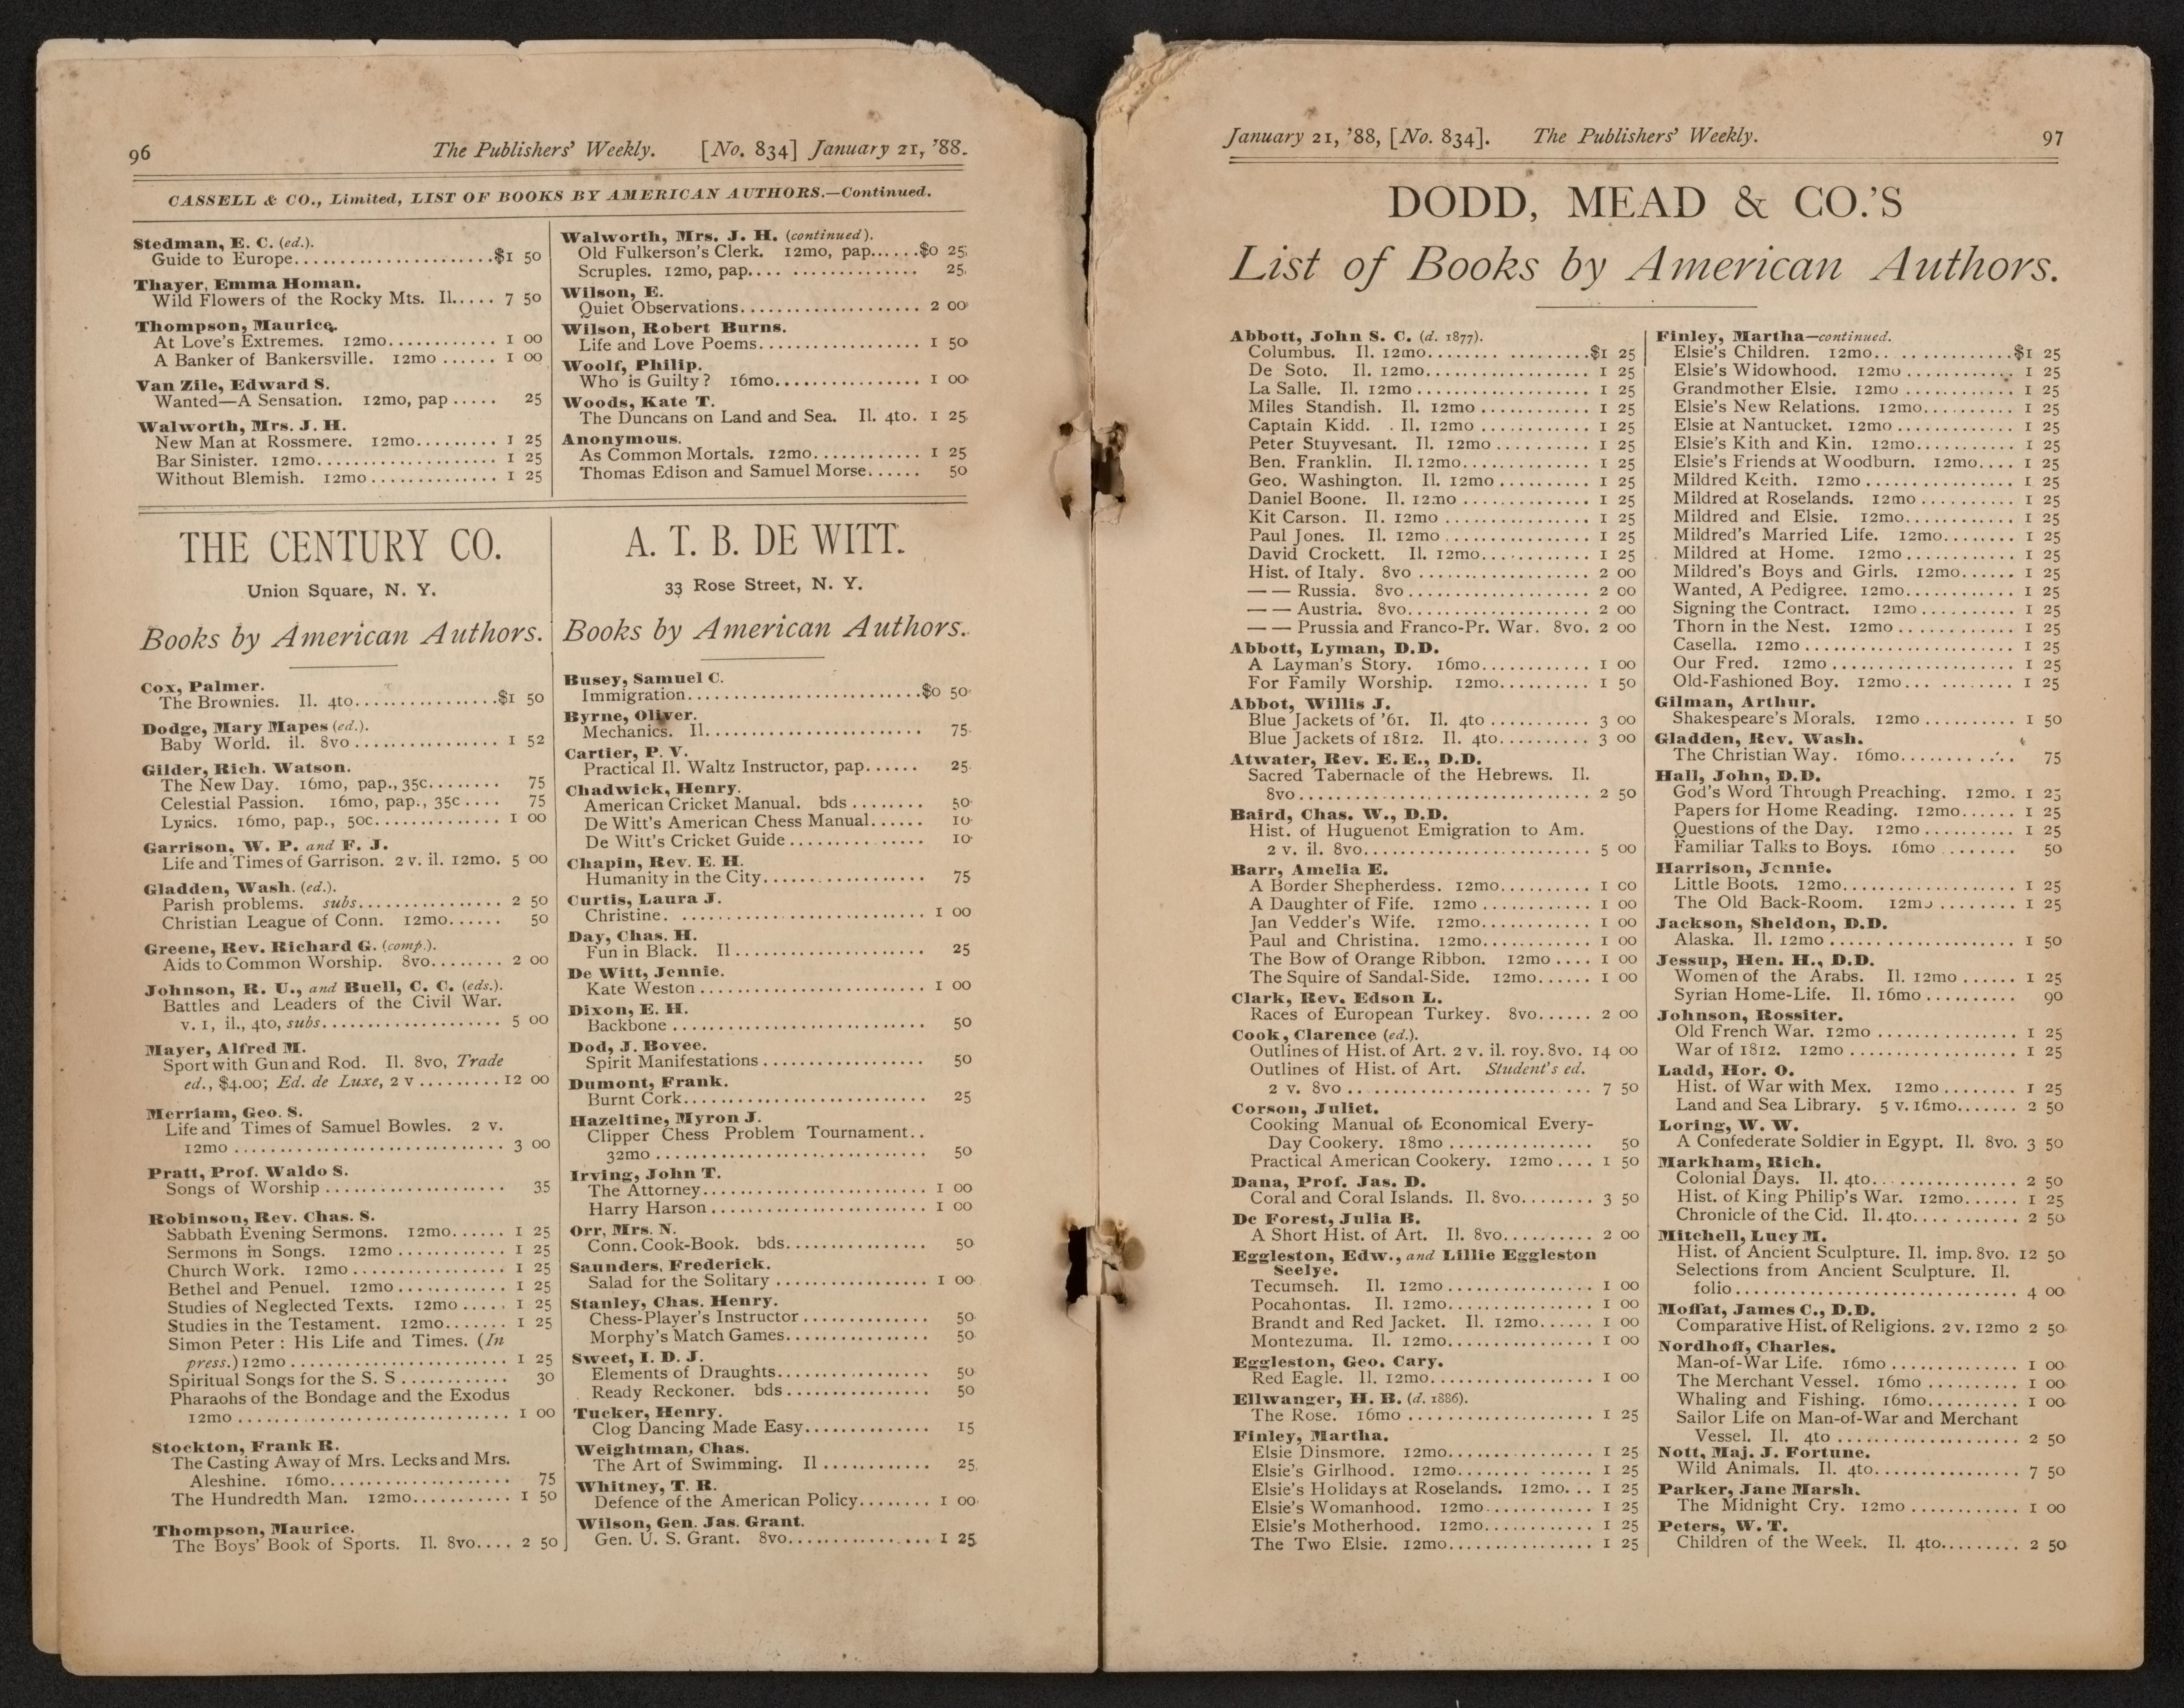 96 The Publishers' Weekly. [No. 834] January 21, '88.
CASSELL & CO., Limited, LIST OF BOOKS BY AMERICAN AUTHORS.—Continued.
Stedman, E. C. (ed.).
Guide to Europe.......................$1 50
Thayer, Emma Homan.
Wild Flowers of the Rocky Mts. Il..... 7 50
Thompson, Maurice.
At Love's Extremes. 12mo............ 1 00
A Banker of Bankersville. 12mo ...... 1 00
Van Zile, Edward S.
Wanted—A Sensation. 12mo, pap ..... 25
Walworth, Mrs. J. H.
New Man at Rossmere. 12mo......... 1 25
Bar Sinister. 12mo................... 1 25
Without Blemish. 12mo............. 1 25
Walworth, Mrs. J. H. (continued).
Old Fulkerson's Clerk. 12mo, pap......$0 25
Scruples. 12mo, pap.... ............. 25
Wilson, E.
Quiet Observations................... 2 00
Wilson, Robert Burns.
Life and Love Poems................. 1 50
Woolf, Philip.
Who is Guilty? 16mo................ 1 00
Woods, Kate T.
The Duncans on Land and Sea. Il. 4to. 1 25
Anonymous.
As Common Mortals. 12mo............ 1 25
Thomas Edison and Samuel Morse...... 50
THE CENTURY CO.
Union Square, N. Y.
Books by American Authors.
Cox, Palmer.
The Brownies. Il. 4to................$1 50
Dodge, Mary Mapes (ed.).
Baby World. il. 8vo ................ 1 52
Gilder, Rich. Watson.
The New Day. 16mo, pap., 35c........ 75
Celestial Passion. 16mo, pap., 35c .... 75
Lyrics. 16mo, pap., 50c.............. 1 00
Garrison, W. P. and F. J.
Life and Times of Garrison. 2 v. il. 12mo. 5 00
Gladden, Wash. (ed.).
Parish problems. subs................ 2 50
Christian League of Conn. 12mo...... 50
Greene, Rev. Richard G. (comp.).
Aids to Common Worship. 8vo........ 2 00
Johnson, R. U., and Buell, C. C. (eds.).
Battles and Leaders of the Civil War.
v. 1, il., 4to, subs................... 5 00
Mayer, Alfred M.
Sport with Gun and Rod. Il. 8vo, Trade
ed., $4.00; Ed. de Luxe, 2 v .........12 00
Merriam, Geo. S.
Life and Times of Samuel Bowles. 2 v.
12mo ............................. 3 00
Pratt, Prof. Waldo S.
Songs of Worship ................... 35
Robinson, Rev. Chas. S.
Sabbath Evening Sermons. 12mo...... 1 25
Sermons in Songs. 12mo ............ 1 25
Church Work. 12mo ................ 1 25
Bethel and Penuel. 12mo ............ 1 25
Studies of Neglected Texts. 12mo ..... 1 25
Studies in the Testament. 12mo....... 1 25
Simon Peter: His Life and Times. (In
press.) 12mo ........................ 1 25
Spiritual Songs for the S. S ............ 30
Pharaohs of the Bondage and the Exodus
12mo ............................. 1 00
Stockton, Frank R.
The Casting Away of Mrs. Lecks and Mrs.
Aleshine. 16mo................... 75
The Hundredth Man. 12mo........... 1 50
Thompson, Maurice.
The Boys' Book of Sports. Il. 8vo.... 2 50
A. T. B. DE WITT.
33 Rose Street, N. Y.
Books by American Authors.
Busey, Samuel C.
Immigration.........................$0 50
Byrne, Oliver.
Mechanics. Il....................... 75
Cartier, P. V.
Practical Il. Waltz Instructor, pap...... 25
Chadwick, Henry.
American Cricket Manual. bds ........ 50
De Witt's American Chess Manual...... 10
De Witt's Cricket Guide ............... 10
Chapin, Rev. E. H.
Humanity in the City................. 75
Curtis, Laura J.
Christine. .......................... 1 00
Day, Chas. H.
Fun in Black. Il .................... 25
De Witt, Jennie.
Kate Weston ........................ 1 00
Dixon, E. H.
Backbone ........................... 50
Dod, J. Bovee.
Spirit Manifestations ................. 50
Dumont, Frank.
Burnt Cork.......................... 25
Hazeltine, Myron J.
Clipper Chess Problem Tournament..
32mo ............................. 50
Irving, John T.
The Attorney........................ 1 00
Harry Harson ....................... 1 00
Orr, Mrs. N.
Conn. Cook-Book. bds............... 50
Saunders, Frederick.
Salad for the Solitary ................. 1 00
Stanley, Chas. Henry.
Chess-Player's Instructor ............. 50
Morphy's Match Games............... 50
Sweet, I. D. J.
Elements of Draughts................ 50
Ready Reckoner. bds ............... 50
Tucker, Henry.
Clog Dancing Made Easy............. 15
Weightman, Chas.
The Art of Swimming. Il ............ 25
Whitney, T. R.
Defence of the American Policy........ 1 00
Wilson, Gen. Jas. Grant.
Gen. U. S. Grant. 8vo................ 1 25
January 21, '88, [No. 834]. The Publishers' Weekly. 97
DODD, MEAD & CO.'S
List of Books by American Authors.
Abbott, John S. C. (d. 1877).
Columbus. Il. 12mo........ .........$1 25
De Soto. Il. 12mo.................. 1 25
La Salle. Il. 12mo ................... 1 25
Miles Standish. Il. 12mo ............ 1 25
Captain Kidd. Il. 12mo ............ 1 25
Peter Stuyvesant. Il. 12mo .......... 1 25
Ben. Franklin. Il. 12mo.............. 1 25
Geo. Washington. Il. 12mo .......... 1 25
Daniel Boone. Il. 12mo .............. 1 25
Kit Carson. Il. 12mo ................ 1 25
Paul Jones. Il. 12mo ................ 1 25
David Crockett. Il. 12mo............ 1 25
Hist. of Italy. 8vo ................... 2 00
— — Russia. 8vo .................... 2 00
— — Austria. 8vo.................... 2 00
— — Prussia and Franco-Pr. War. 8vo. 2 00
Abbott, Lyman, D.D.
A Layman's Story. 16mo............ 1 00
For Family Worship. 12mo.......... 1 50
Abbot, Willis J.
Blue Jackets of '61. Il. 4to ........... 3 00
Blue Jackets of 1812. Il. 4to.......... 3 00
Atwater, Rev. E. E., D.D.
Sacred Tabernacle of the Hebrews. Il.
8vo................................ 2 50
Baird, Chas. W., D.D.
Hist. of Huguenot Emigration to Am.
2 v. il. 8vo........................ 5 00
Barr, Amelia E.
A Border Shepherdess. 12mo.......... 1 00
A Daughter of Fife. 12mo ............ 1 00
Jan Vedder's Wife. 12mo............ 1 00
Paul and Christina. 12mo............ 1 00
The Bow of Orange Ribbon. 12mo .... 1 00
The Squire of Sandal-Side. 12mo...... 1 00
Clark, Rev. Edson L.
Races of European Turkey. 8vo...... 2 00
Cook, Clarence (ed.).
Outlines of Hist. of Art. 2 v. il. roy. 8vo. 14 00
Outlines of Hist. of Art. Student's ed.
2 v. 8vo ........................... 7 50
Corson, Juliet.
Cooking Manual of Economical Every-
Day Cookery. 18mo ................ 50
Practical American Cookery. 12mo .... 1 50
Dana, Prof. Jas. D.
Coral and Coral Islands. Il. 8vo........ 3 50
De Forest, Julia B.
A Short Hist. of Art. Il. 8vo.......... 2 00
Eggleston, Edw., and Lillie Eggleston
Seelye.
Tecumseh. Il. 12mo ................ 1 00
Pocahontas. Il. 12mo................ 1 00
Brandt and Red Jacket. Il. 12mo...... 1 00
Montezuma. Il. 12mo................ 1 00
Eggleston, Geo. Cary.
Red Eagle. Il. 12mo................. 1 00
Ellwanger, H. B. (d. 1886).
The Rose. 16mo .................... 1 25
Finley, Martha.
Elsie Dinsmore. 12mo................ 1 25
Elsie's Girlhood. 12mo........ ...... 1 25
Elsie's Holidays at Roselands. 12mo... 1 25
Elsie's Womanhood. 12mo............ 1 25
Elsie's Motherhood. 12mo............ 1 25
The Two Elsie. 12mo................ 1 25
Finley, Martha—continued.
Elsie's Children. 12mo.. ............$1 25
Elsie's Widowhood. 12mo ............ 1 25
Grandmother Elsie. 12mo ............ 1 25
Elsie's New Relations. 12mo.......... 1 25
Elsie at Nantucket. 12mo ............ 1 25
Elsie's Kith and Kin. 12mo.......... 1 25
Elsie's Friends at Woodburn. 12mo.... 1 25
Mildred Keith. 12mo ................ 1 25
Mildred at Roselands. 12mo .......... 1 25
Mildred and Elsie. 12mo............ 1 25
Mildred's Married Life. 12mo........ 1 25
Mildred at Home. 12mo ............ 1 25
Mildred's Boys and Girls. 12mo...... 1 25
Wanted, A Pedigree. 12mo............ 1 25
Signing the Contract. 12mo .......... 1 25
Thorn in the Nest. 12mo ............ 1 25
Casella. 12mo ...................... 1 25
Our Fred. 12mo ................... 1 25
Old-Fashioned Boy. 12mo... ........ 1 25
Gilman, Arthur.
Shakespeare's Morals. 12mo .......... 1 50
Gladden, Rev. Wash.
The Christian Way. 16mo............ 75
Hall, John, D.D.
God's Word Through Preaching. 12mo. 1 25
Papers for Home Reading. 12mo...... 1 25
Questions of the Day. 12mo .......... 1 25
Familiar Talks to Boys. 16mo ........ 50
Harrison, Jennie.
Little Boots. 12mo.................. 1 25
The Old Back-Room. 12mo ........ 1 25
Jackson, Sheldon, D.D.
Alaska. Il. 12mo .................... 1 50
Jessup, Hen. H., D.D.
Women of the Arabs. Il. 12mo ...... 1 25
Syrian Home-Life. Il. 16mo .......... 90
Johnson, Rossiter.
Old French War. 12mo .............. 1 25
War of 1812. 12mo .................. 1 25
Ladd, Hor. O.
Hist. of War with Mex. 12mo........ 1 25
Land and Sea Library. 5 v. 16mo....... 2 50
Loring, W. W.
A Confederate Soldier in Egypt. Il. 8vo. 3 50
Markham, Rich.
Colonial Days. Il. 4to................ 2 50
Hist. of King Philip's War. 12mo...... 1 25
Chronicle of the Cid. Il. 4to............ 2 50
Mitchell, Lucy M.
Hist. of Ancient Sculpture. Il. imp. 8vo. 12 50
Selections from Ancient Sculpture. Il.
folio ............................... 4 00
Moffat, James C., D.D.
Comparative Hist. of Religions. 2 v. 12mo 2 50
Nordhoff, Charles.
Man-of-War Life. 16mo .............. 1 00
The Merchant Vessel. 16mo .......... 1 00
Whaling and Fishing. 16mo.......... 1 00
Sailor Life on Man-of-War and Merchant
Vessel. Il. 4to .................... 2 50
Nott, Maj. J. Fortune.
Wild Animals. Il. 4to................ 7 50
Parker, Jane Marsh.
The Midnight Cry. 12mo ............ 1 00
Peters, W. T.
Children of the Week. Il. 4to......... 2 50